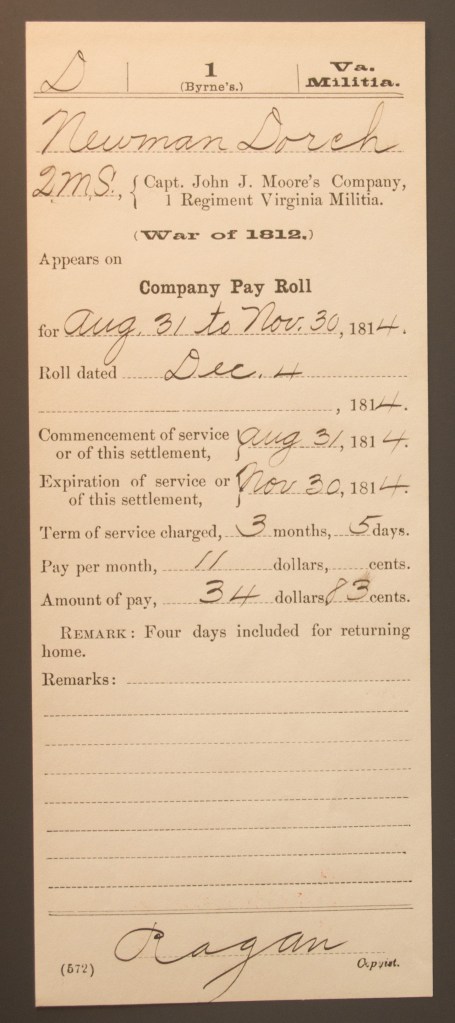 D 1 Va.
(Byrne's.) Militia.
Newman Dorch
Q.M.S., { Capt. John J. Moore's Company,
1 Regiment Virginia Militia.
(War of 1812.)
Appears on
Company Pay Roll
for Aug. 31 to Nov. 30, 1814.
Roll dated Dec. 4
, 1814.
Commencement of service
or of this settlement, } Aug 31, 1814.
Expiration of service or
of this settlement, } Nov 30, 1814.
Term of service charged, 3 months, 5 days.
Pay per month, 11 dollars, cents.
Amount of pay, 34 dollars 83 cents.
REMARK: Four days included for returning
home.
Remarks:
Ragan
(572) Copyist.